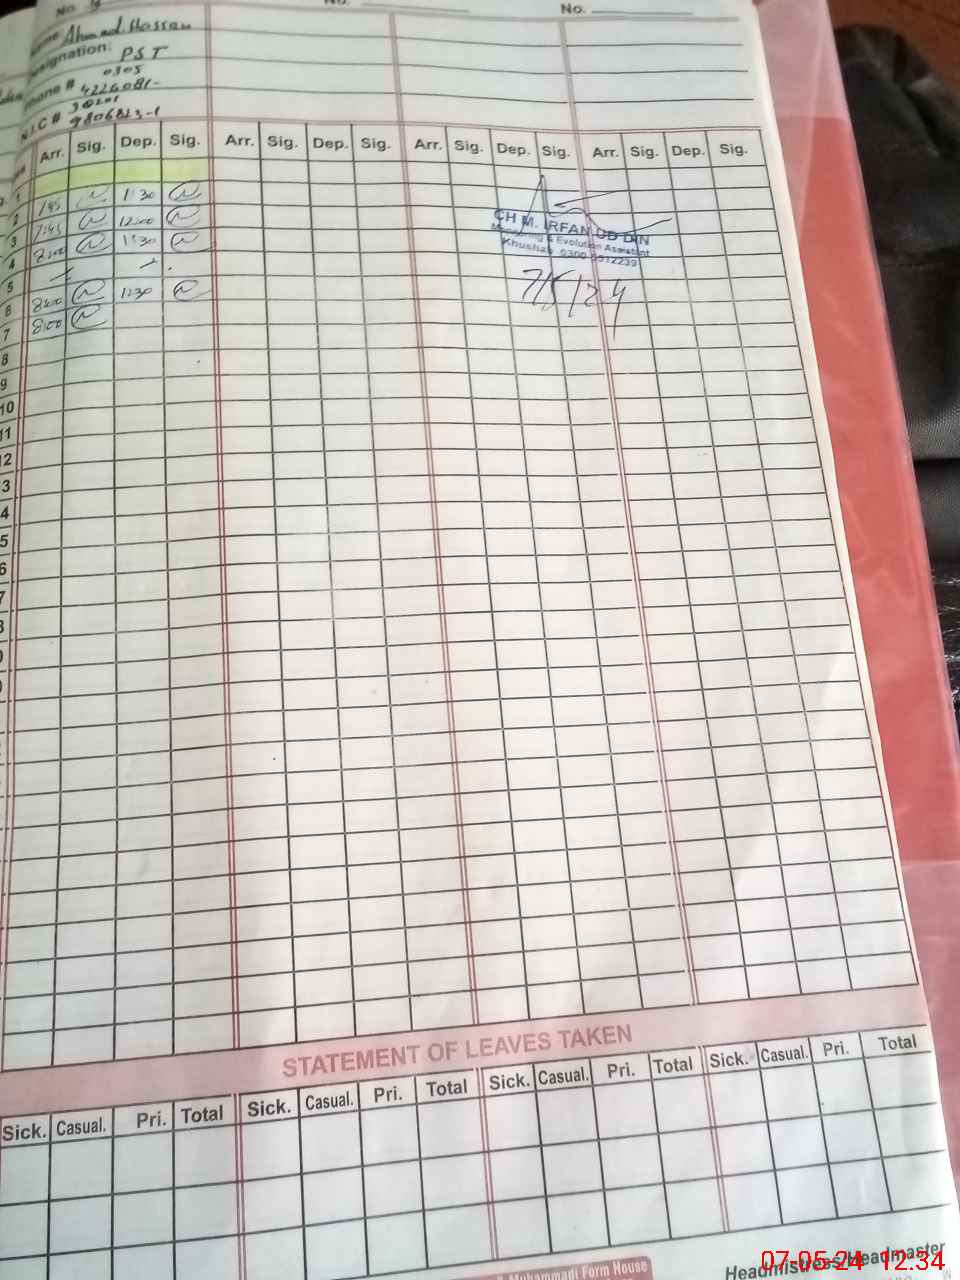 No. No. No.
Name: Ahmad Hassan
Designation: PST
0305
Phone # 4226081-
38201
N.I.C # 9806823-1
Arr. Sig. Dep. Sig. Arr. Sig. Dep. Sig. Arr. Sig. Dep. Sig. Arr. Sig. Dep. Sig.
1
2 7:45 1:30
3 7:45 12:00
4 8:00 1:30
5
6 8:00 1:30
7 8:00
8
9
10
11
12
3
4
5
6
7
8
CH M. IRFAN UD DIN
Monitoring & Evolution Assistant
Khushab 0300
7/5/24
STATEMENT OF LEAVES TAKEN
Sick. Casual. Pri. Total Sick. Casual. Pri. Total Sick. Casual. Pri. Total Sick. Casual. Pri. Total
Muhammadi Form House
Headmistress/Headmaster
07-05-24 12:34